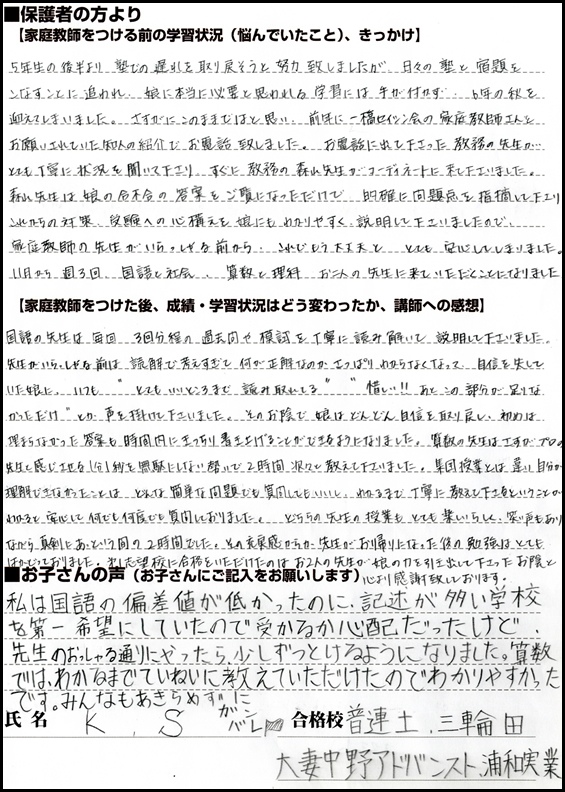 ■保護者の方より
【家庭教師をつける前の学習状況（悩んでいたこと）、きっかけ】
5年生の後半より 塾での遅れを取り戻そうと努力致しましたが、日々の塾と宿題を
こなすことに追われ、娘に本当に必要と思われる学習には手が付かず… 6年の秋を
迎えてしまいました。さすがにこのままではと思い、前年に一橋セイシン会の家庭教師さんを
お願いされていた知人の紹介でお電話致しました。お電話に出て下さった教務の先生が…
とても丁寧に状況を聞いて下さり すぐに教務の森山先生がコーディネートに来て下さいました。
森山先生は娘の合不合の答案をご覧になっただけで 的確に問題点を指摘して下さり
これからの対策、受験への心構えを娘にもわかりやすく説明して下さいましたので、
家庭教師の先生がいらっしゃる前から、これでもう大丈夫と とても安心してしまいました。
11月から週3回、国語と社会、算数と理科 お二人の先生に来ていただくことになりました
【家庭教師をつけた後、成績・学習状況はどう変わったか、講師への感想】
国語の先生は毎回 3回分程の過去問や模試を丁寧に読み解いて 説明して下さいました。
先生がいらっしゃる前は 読解で考えすぎて何が正解なのかさっぱりわからなくなって 自信を失して
いた娘に、いつも "とてもいいところまで 読み取れてる" "惜しい!! あとこの部分が足りな
かっただけ" とか 声を掛けて下さいました。そのお陰で娘はどんどん自信を取り戻し、初めは
埋まらなかった答案も時間内にきっちり書き上げることができるようになりました。算数の先生はさすがプロの
先生と感じさせる1分1秒を無駄にしない勢いで2時間 次々と教えて下さいました。集団授業とは違い自分が
理解できなかったことは どんな簡単な問題でも質問してもいいし、わかるまで丁寧に教えて下さるということが
わかると 安心して何でも何度でも質問しておりました。どちらの先生の授業も とても楽しいらしく、笑い声もあり
ながら真剣に あっという間の2時間でした。その充実感からか 先生がお帰りになった後の勉強はとても
はかどっておりました。第1志望校に合格をいただけたのはお2人の先生が娘の力を引き出して下さったお陰と
心より感謝致しております。
■お子さんの声（お子さんにご記入をお願いします）
私は国語の偏差値が低かったのに、記述が多い学校
を第一希望にしていたので受かるか心配だったけど、
先生のおっしゃる通りにやったら少しずつとけるようになりました。算数
では、わかるまでていねいに教えていただけたのでわかりやすかった
です。みんなもあきらめずに
ガンバレ
氏名 K．S 合格校 普連土、三輪田
大妻中野アドバンスト、浦和実業